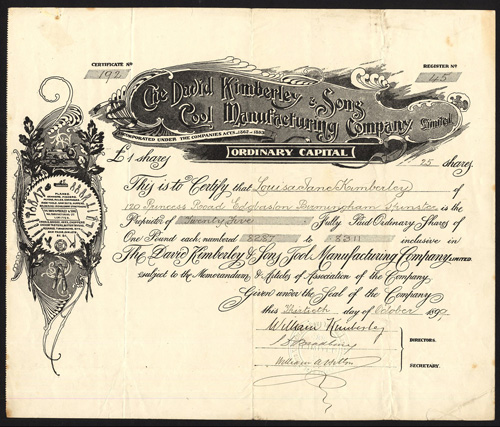 CERTIFICATE No
192
REGISTER No
45
The David Kimberley & Sons
Tool Manufacturing Company Limited
INCORPORATED UNDER THE COMPANIES ACTS, 1862
ORDINARY CAPITAL
£1 shares
25 shares
This is to Certify that Louisa Jane Kimberley of
120 Princess Road Edgbaston Birmingham Spinster is the
Proprietor of Twenty Five Fully Paid Ordinary Shares of
One Pound each, numbered 8287 to 8311 inclusive in
The David Kimberley & Sons Tool Manufacturing Company LIMITED
subject to the Memorandum & Articles of Association of the Company
Given under the Seal of the Company
this Thirtieth day of October 1897
William Kimberley
DIRECTORS.
William A Hilton
SECRETARY.
PLANES